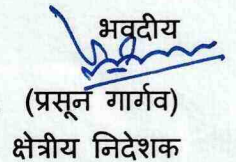 भवदीय
(प्रसून गार्गव)
क्षेत्रीय निदेशक